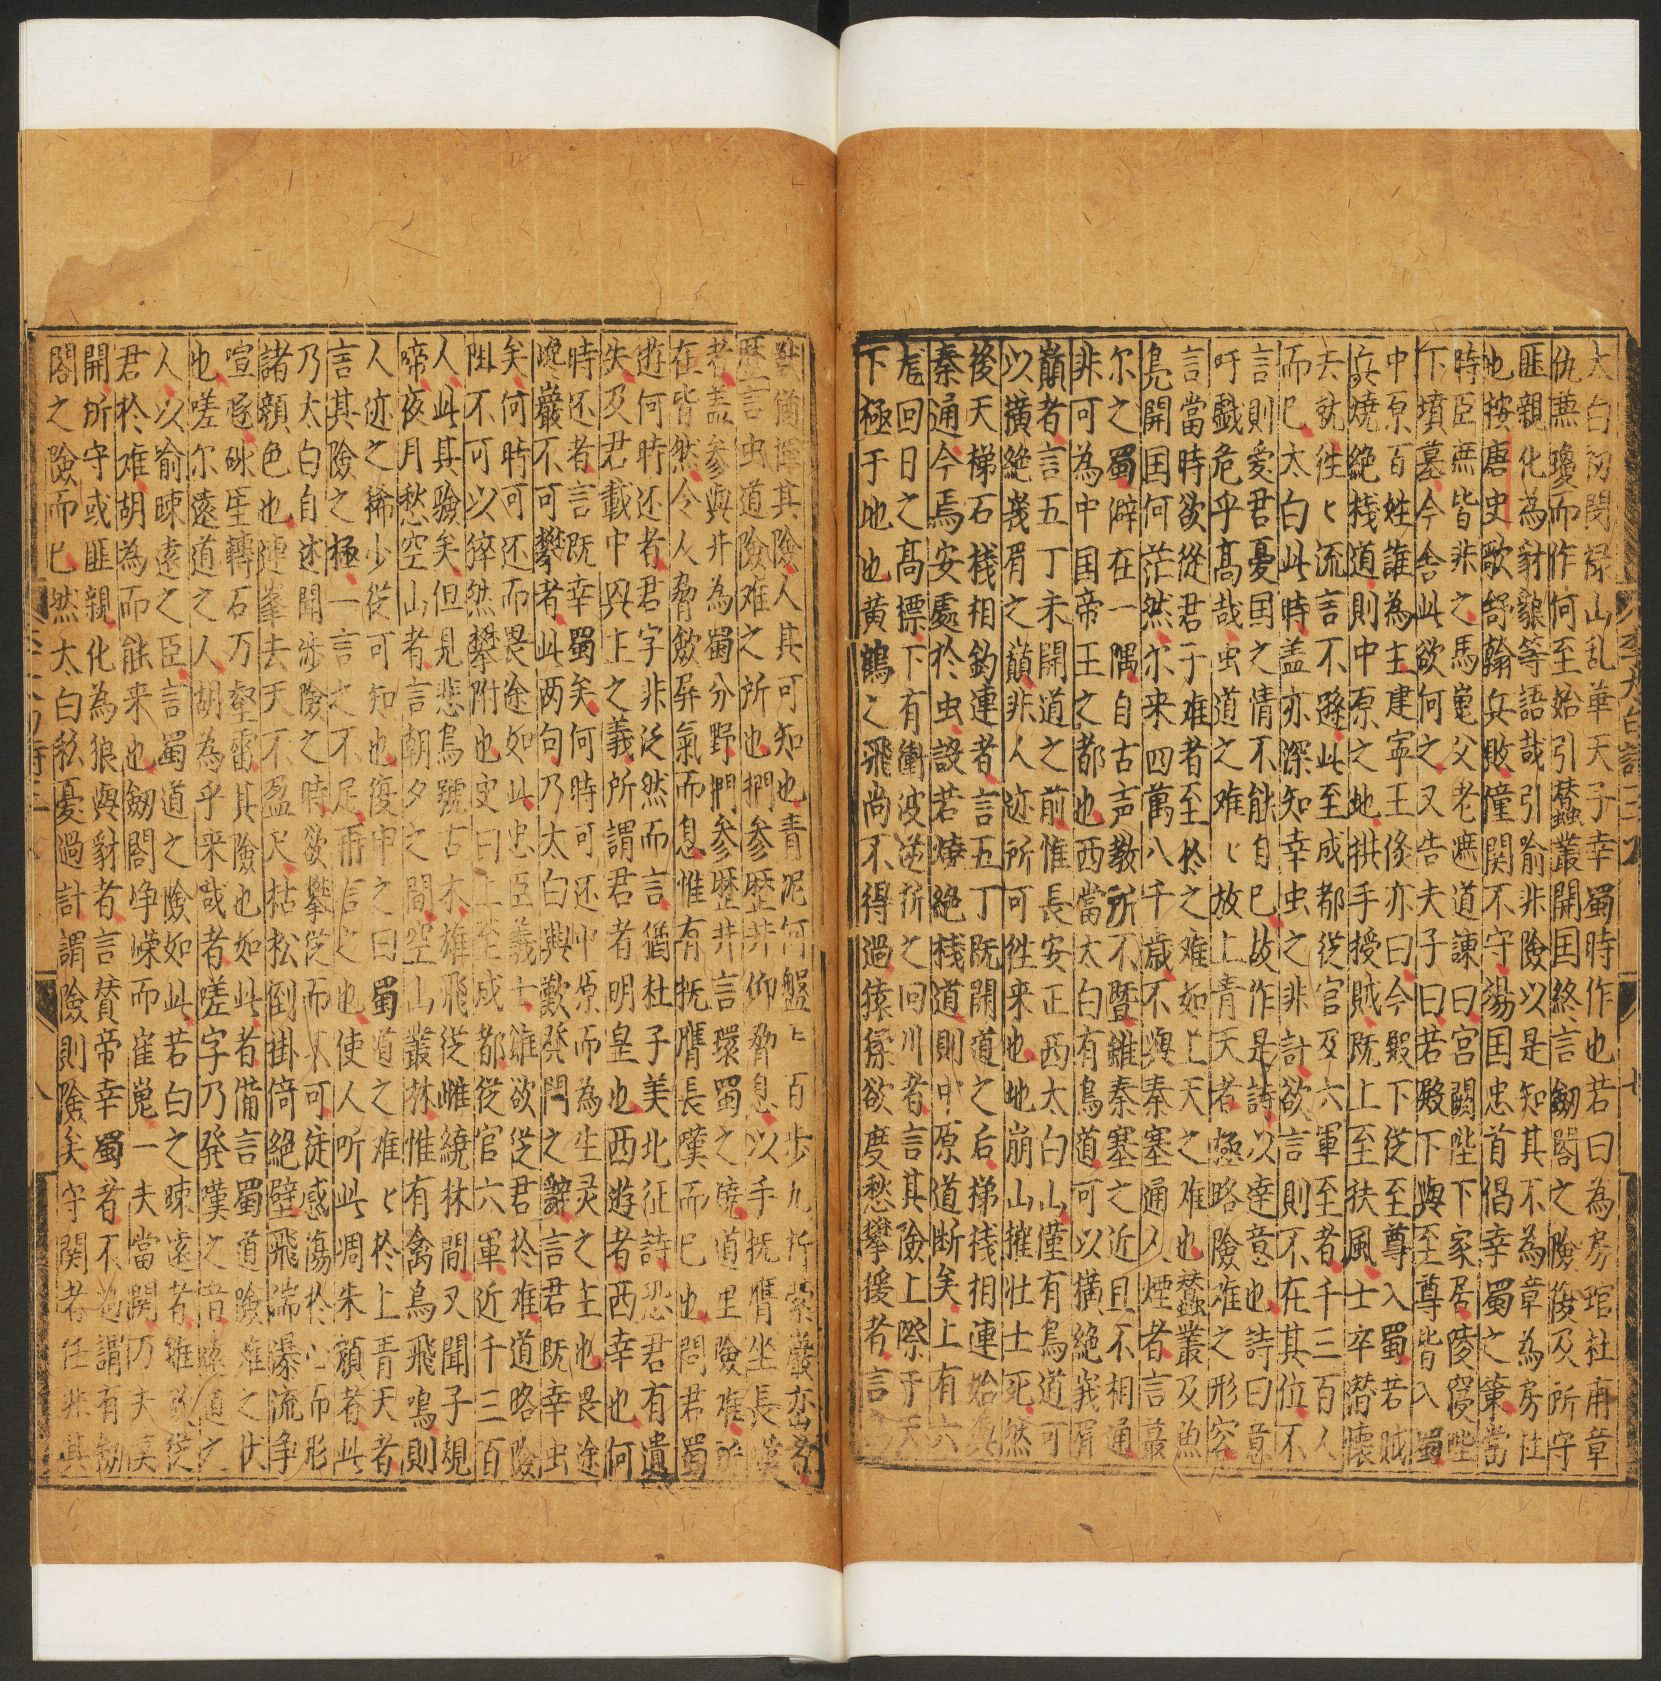 太白初聞祿山乱華天子幸蜀時作也若曰為房琯杜甫章
仇蕪瓊而作何至始引蠶叢開国終言劒閣之險復及所守
匪親化為豺狼等語哉引喻非險以是知其不為章為房杜
也按唐史歌舒翰兵敗僮関不守楊国忠首倡幸蜀之策當
時臣庶皆非之馬嵬父老遮道諫曰宮闕陛下家居陵寢陛
下墳墓今舍此欲何之又告夫子曰若殿下與至尊皆入蜀
中原百姓誰為主建寧王倓亦曰今殿下從至尊入蜀若賊
兵燒絶棧道則中原之地拱手授賊既上至扶風士卒潜懷
去就徃〻流言不遜此至成都從官及六軍至者千三百人
而已太白此時盖亦深知幸虫之非計欲言則不在其位不
言則愛君憂国之情不能自已故作是詩以逹意也詩曰意
吁戲危乎髙哉虫道之难〻故上青天者極略險难之形容
言當時欲從君于难者至於之难如上天之难也蠶叢及魚
凫開国何茫然尔来四萬八千歳不與秦塞通人煙者言蕞
尔之蜀僻在一隅自古声教所不暨雖秦塞之近且不相通
非可為中国帝王之都也西當太白有鳥道可以横絶峩眉
巔者言五丁未開道之前惟長安正西太白山僅有鳥道可
以横絶峩眉之巔非人迹所可徃来也地崩山摧壮士死然
後天梯石棧相鈎連者言五丁既開道之后梯棧相連始與
秦通今焉安處於虫設若燒絶棧道則中原道断矣上有六
尨回日之髙標下有衝波逆折之回川者言其險上際于天
下極于地也黄鶴之飛尚不得過猿猱欲度愁攀援者言
獸猶憚其險人其可知也青泥何盤〻百步九折縈巖巒者
歴言虫道險难之所也捫参歴井仰脅息以手抚膺坐長嘆
者盖参與井為蜀分野捫参歴井言環蜀之境道里險难所
在皆然令人脅歛屏氣而息惟有抚膺長嘆而已也問君蜀
遊何時还者君字非泛然而言猶杜子美北征詩恐君有遺
失及君載中興上之義所謂君者明皇也西遊者西幸也何
時还者言既幸蜀矣何時可还中原而為生灵之主也畏途
巉巖不可攀者此两句乃太白興歎発問之辭言君既幸虫
矣何時可还而畏途如此忠臣義士雖欲從君於难道略險
阻不可以猝然攀附也史曰上至成都從官六軍近千三百
人此其驗矣但見悲鳥號古木雄飛從雌繞林間又聞子規
啼夜月愁空山者言朝夕之間空山叢林惟有禽鳥飛鳴則
人迹之稀少從可知也復申之曰蜀道之难〻於上青天者
言其險之極一言之不足再信之也使人听此凋朱顔者此
乃太白自述聞涉險之時欲攀從而不可徒感傷於心而形
諸顔色也連峯去天不盈尺枯松倒掛倚絶壁飛湍瀑流争
喧豗砯厓轉石万壑雷其險也如此者備言蜀道險难之状
也嗟尔逺道之人胡為乎来哉者嗟字乃発嘆之
人以喻踈逺之臣言蜀道之險如此若白之踈逺者雖欲從
君於难胡為而能来也劒閣峥嵘而崔嵬一夫當関万夫莫
開所守或匪親化為狼與豺者言賛帝幸蜀者不過謂有劒
閣之險而已然太白欲憂過計謂險則險矣守関者任非其